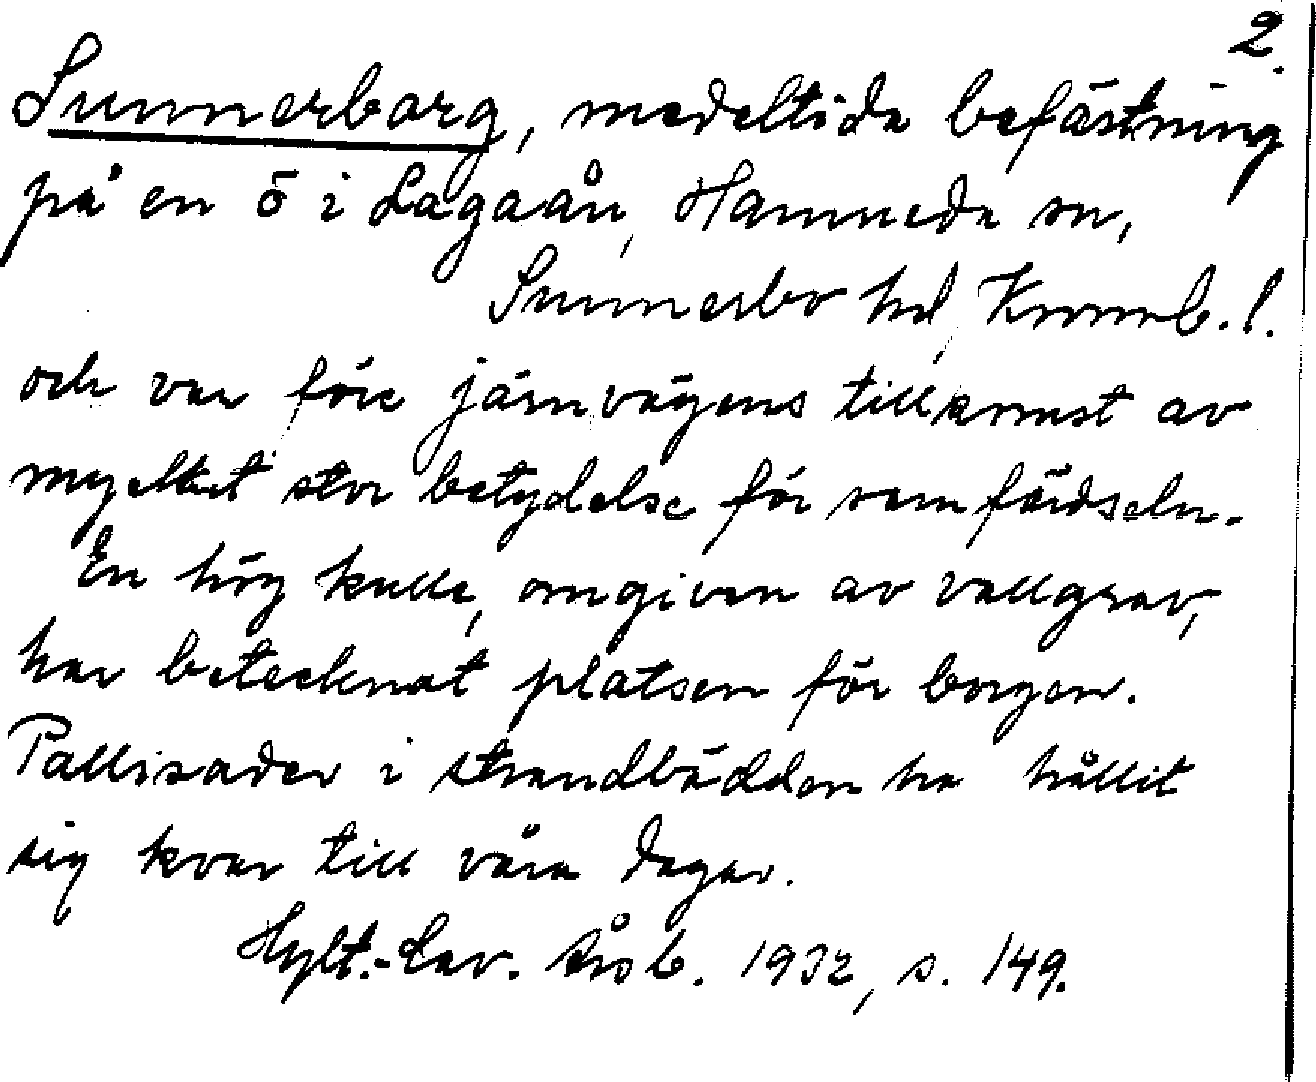 2.
Sunnerborg, medeltida befästning
på en ö i Lagaån, Hamneda sn,
Sunnerbo hd, Kronob. l.
och var före järnvägens tillkomst av
mycket stor betydelse för samfärdseln.
En hög kulle, omgiven av vallgrav,
har betecknat platsen för borgen.
Pallisader i strandbädden ha hållit
sig kvar till våra dagar.
Hylt.-Cav. Årsb. 1932, s. 149.